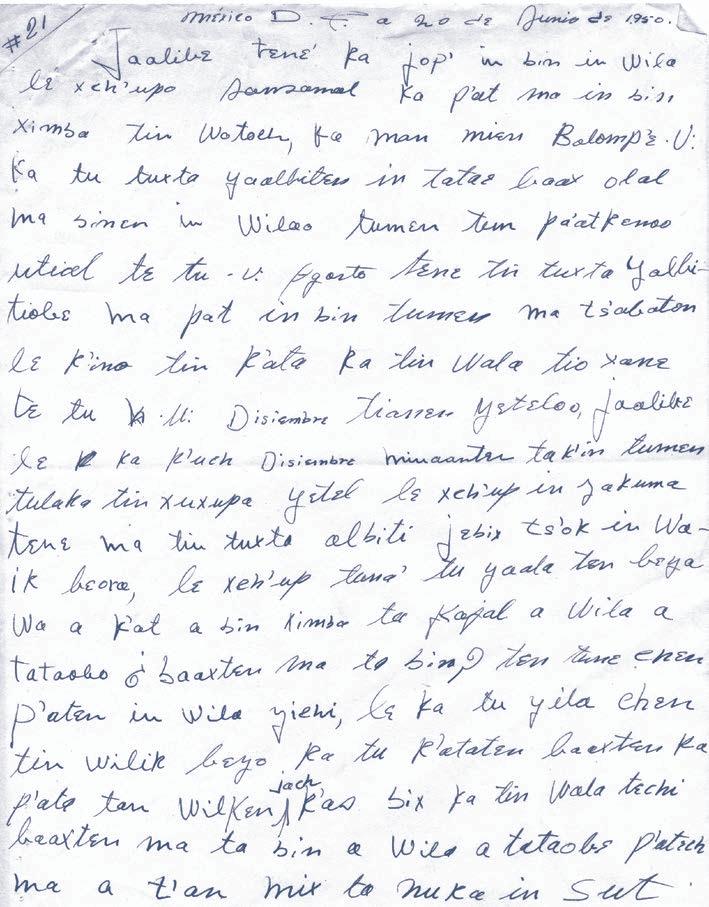 #21
México D. F. a 20 de Junio de 1950.
Jaalibe tene' ka jop' in bin in Wila
le xch'upo Sansamal ka p'at ma in bin
ximba tin Watoch, ka man mien Bolomp'e. U:
Ka tu tuxta yaalbiten in tatae baax olal
ma sinen in Wilao tumen tun pa'atkenoo
utial te tu -U: Agosto tene tin tuxta yalbi-
tiobe ma pat in bin tumen ma ts'abaton
le k'ino tin k'ata ka tin Wala tio xane
te tu U: Disiembre tianen yeteloo, jaalibe
le ka k'uch Disiembre minaanten tak'in tumen
tulaka tin xuxupa yetel le xch'up in yakuma
tene ma tin tuxta albiti jebix ts'ok in Wa-
ik beora, le xch'up tuna' tu yaala ten beya
Wa a k'at a bin ximba ta kajal a Wila a
tataobo ¿ baaxten ma ta bin? ten tune chen
p'aten in Wila yichi, le ka tu yila chen
tin Wilik beyo ka tu k'ataten baaxten ka
p'ata tan Wilken jach k'as bix ka tin Wala techi
baaxten ma ta bin a Wila a tataobe p'atech
ma a t'an mix ta nuka in Sut.